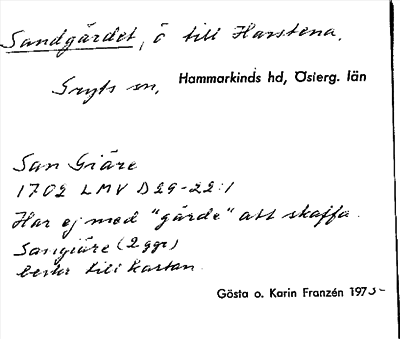 Sandgärdet, ö till Harstena.
Gryts sn, Hammarkinds hd, Österg. län
San Giäre
1702 LMV D29-22:1
Har ej med "gärde" att skaffa.
Sangiäre (2 ggr)
beskr till kartan.
Gösta o. Karin Franzén 1975